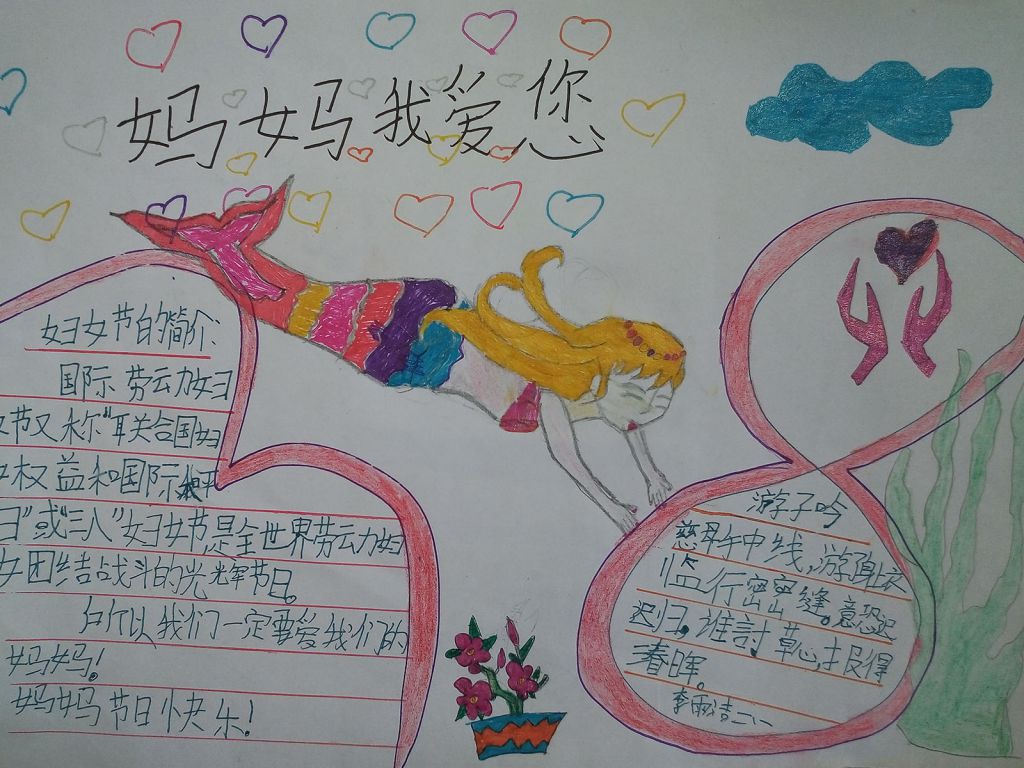 妈妈我爱您
妇女节的简介
国际劳云力妇
女节又称"耳关合国妇
女权益和国际和平
日"或"三八"妇女节是全世界劳云力妇
女团结战斗的光辉节日。
所以我们一定要爱我们的
妈妈!
妈妈节日快乐!
游子吟
慈母手中线,游身上衣
临行密密缝。意恐迟
迟归。谁討草心,报得
春晖。
李雨洁二、一